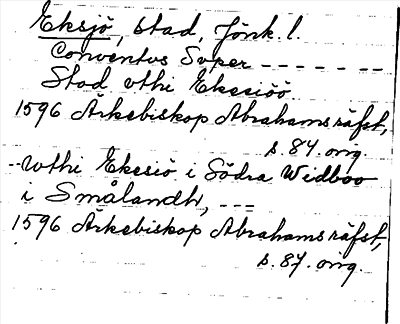 Eksjö, stad, Jönk. l.
Conventus Super - - - - - - -
Stad vthi Ekesiöö
1596 Ärkebiskop Abrahams räfst,
s. 84. orig.
-- vthi Ekesiö i Södra Widboo
i Smålandh, - - -
1596 Ärkebiskop Abrahams räfst,
s. 87. orig.